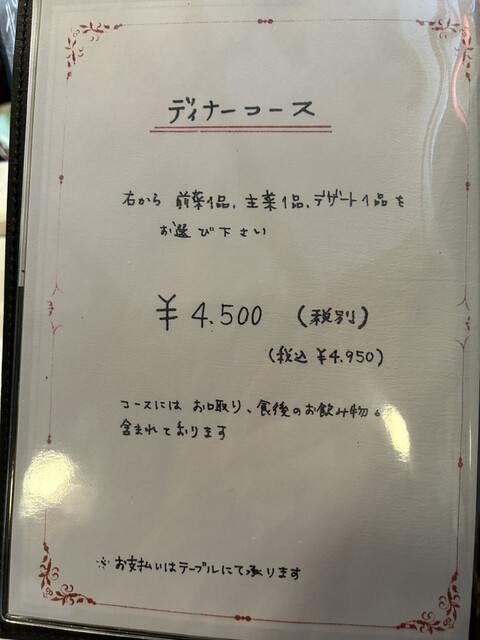 ディナーコース
右から 前菜1品、主菜1品、デザート1品を
お選び下さい
¥4.500 (税別)
(税込 ¥4.950)
コースには お口取り、食後のお飲み物
含まれております
※お支払いはテーブルにて承ります